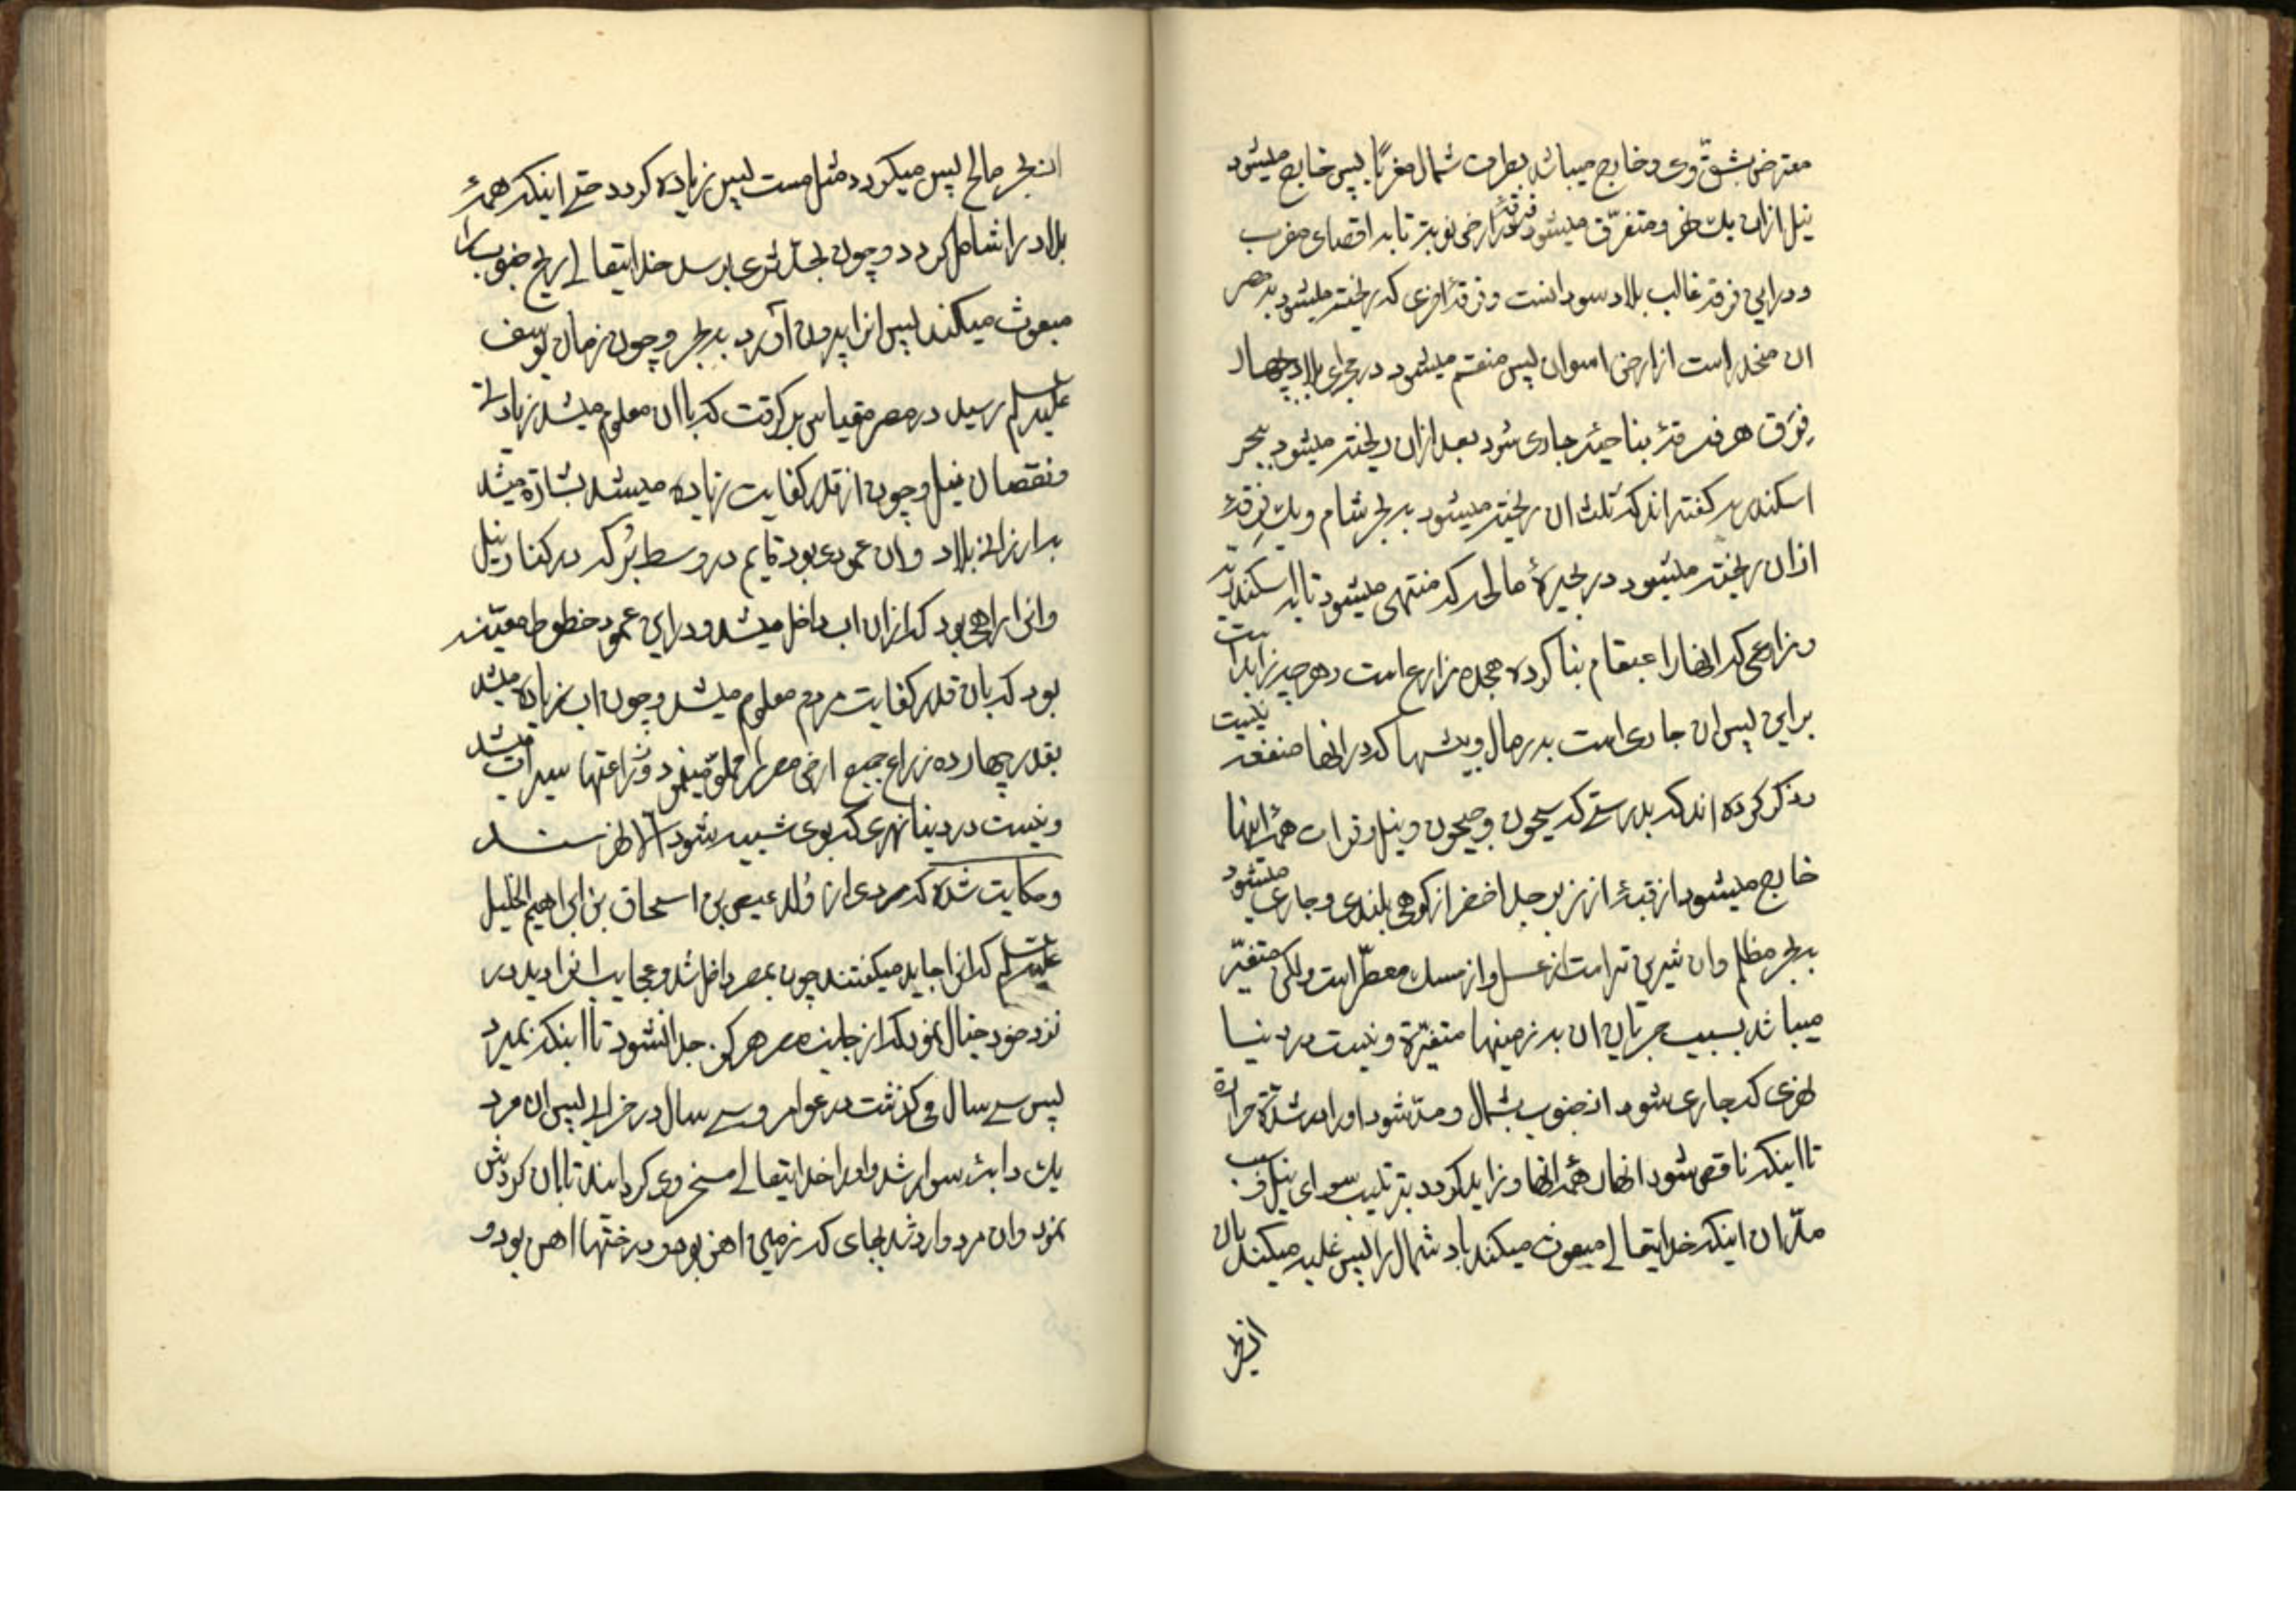 معترض بشقّ وی و خارج میباشد بطرف شمال مغربًا پس خارج میشود
نیل ازان یک نهر و متفرّق میشود فرقهٔ در ارض نوبه تا به اقصای مغرب
و دراین فرقه غالب بلاد سودانست و فرقهٔ اخری که ریخته میشود به مصر
ان منحدر است از ارض اسوان پس منقسم میشود در مجرای بلاد بچهار
فِرَق هر فرقهٔ بناحیهٔ جاری شود بعد ازان ریخته میشود ببحر
اسکندریه گفته اند که ثلث ان ریخته میشود به بحر شام و یک فرقهٔ
ازان ریخته میشود در بحیرهٔ مالحه که منتهی میشود تا به اسکندریّه
و زراعی که انها را عبقام بنا کرده هجده زراع است و هر چه زاید است
براین پس ان جاری است به رمال و بیشها که در انها منفعه نیست
و ذکر کرده اند که بدرستے که سیحون و جیحون و نیل و فرات همهٔ اینها
خارج میشود از قبهٔ از زبرجد اخضر از کوهی بلندی و جاری میشود
به بحر مظلم و ان شیرین تر است از عسل و از مسک معطّر است ولکن متغیّر
میباشد بسبب جریان ان به زمینها متغیّرة و نیست در دنیا
نهری که جاری شود از جنوب بشمال و مدّ شود او را در شدّة حرارة
تا اینکه ناقص شود انهار همهٔ انها و زاید گردد بترتیب سوای نیل و سبب
مدّ ان اینکه خدایتعالے مبعوث میکند باد شمال را پس غلبه میکند بان
انبحر
ان بحر مالح پس میگردد مثل مست پس زیاده گردد حتے اینکه همهٔ
بلاد را شامل گردد و چون بحدّ ثری برسد خدایتعالے ریح جنوب را
مبعوث میکند پس انرا بیرون آورد به بحر و چون زمان یوسف
علیه السلم رسید در مصر مقیاس برگرفت که باان معلوم میشد زیادتے
و نقصان نیل و چون از قدر کفایت زیاده میشد بشارة میشد
به ارزانے بلاد و ان عمودی بود قایم در وسط بُرکه در کنار نیل
و انرا راهی بود که ازان اب داخل میشد و دراین عمود خطوط معیّنه
بود که بان قدر کفایت مردم معلوم میشد و چون اب زیاده میشد
بقدر چهارده زراع جمیع ارض مصر را مملوّ مینمود و زراعتها سیراب میشد
و نیست در دنیا نهری که بوی شبیه شود الّا نهر سند
و حکایت شده که مردی از وُلد عیص بن اسحاق بن ابراهیم الخلیل
علیه السلم که انرا جاید میگفتند چون بمصر داخل شد و عجایب انرا دید در
نزد خود خیال نمود که از جانب هرگز جدا نشود تا اینکه بمیرد
پس سے سال می گذشت در عوامر و سے سال در خرابے پس ان مرد
یک دابهٔ سوار شد و او را خدایتعالے مسخر وی گردانید تا باان گردش
نمود و ان مرد وارد شد بجای که زمین اهن بود و درختها اهن بود و